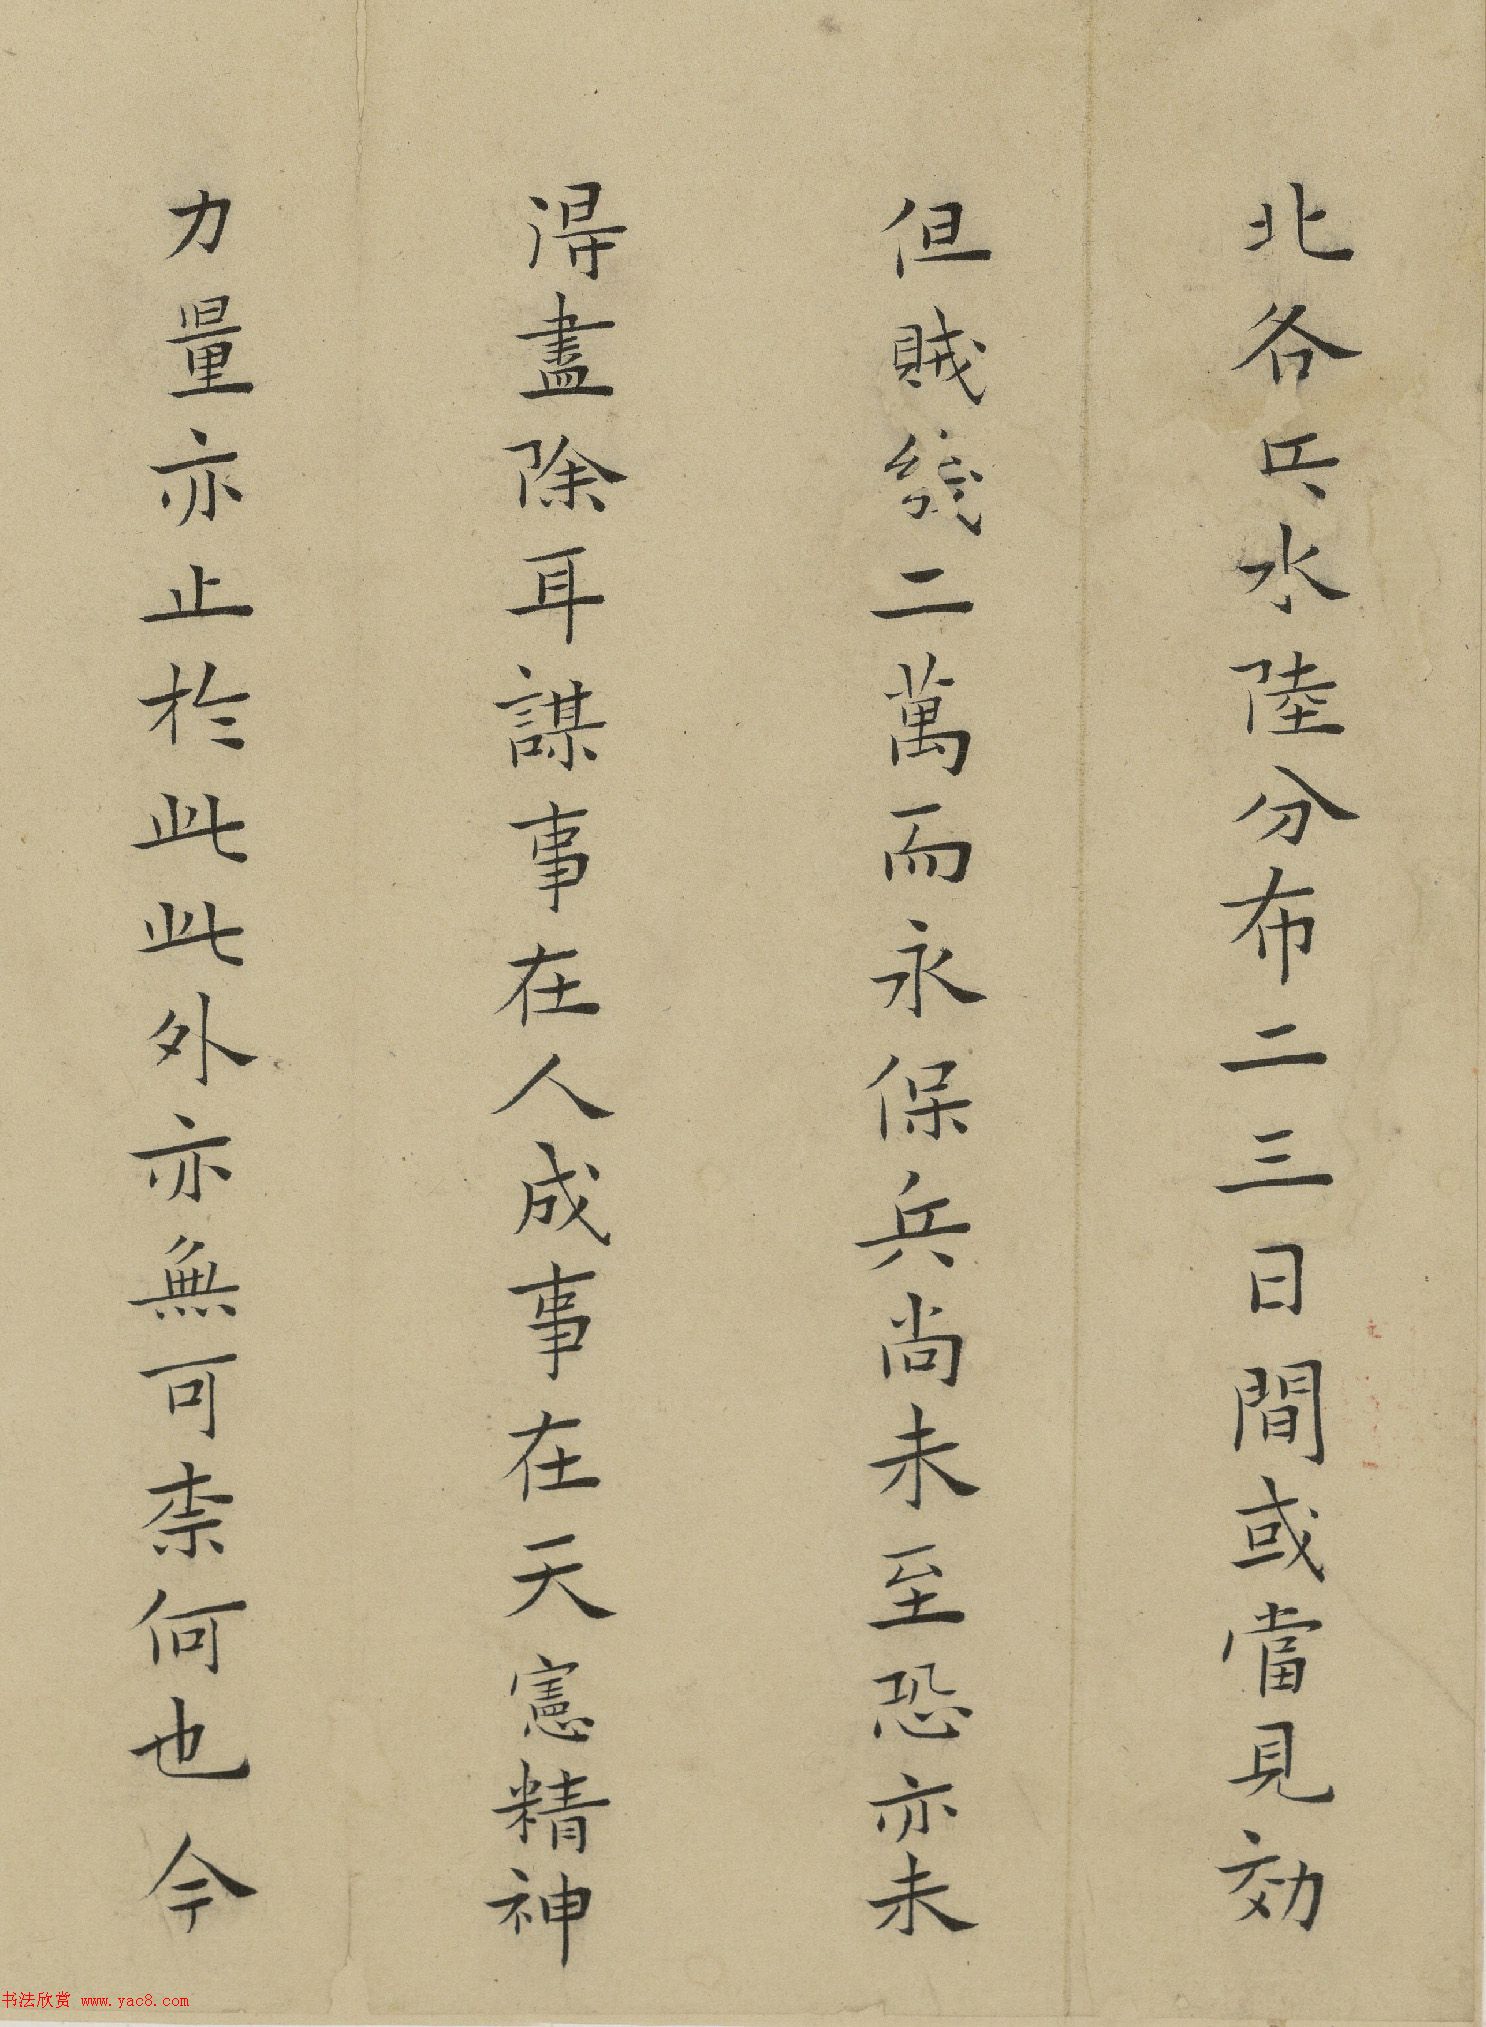 北各兵水陸分布二三日間或當見効
但賊綫二萬而永保兵尚未至恐亦未
得盡除耳謀事在人成事在天憲精神
力量亦止於此此外亦無可柰何也今
书法欣赏 www.yac8.com